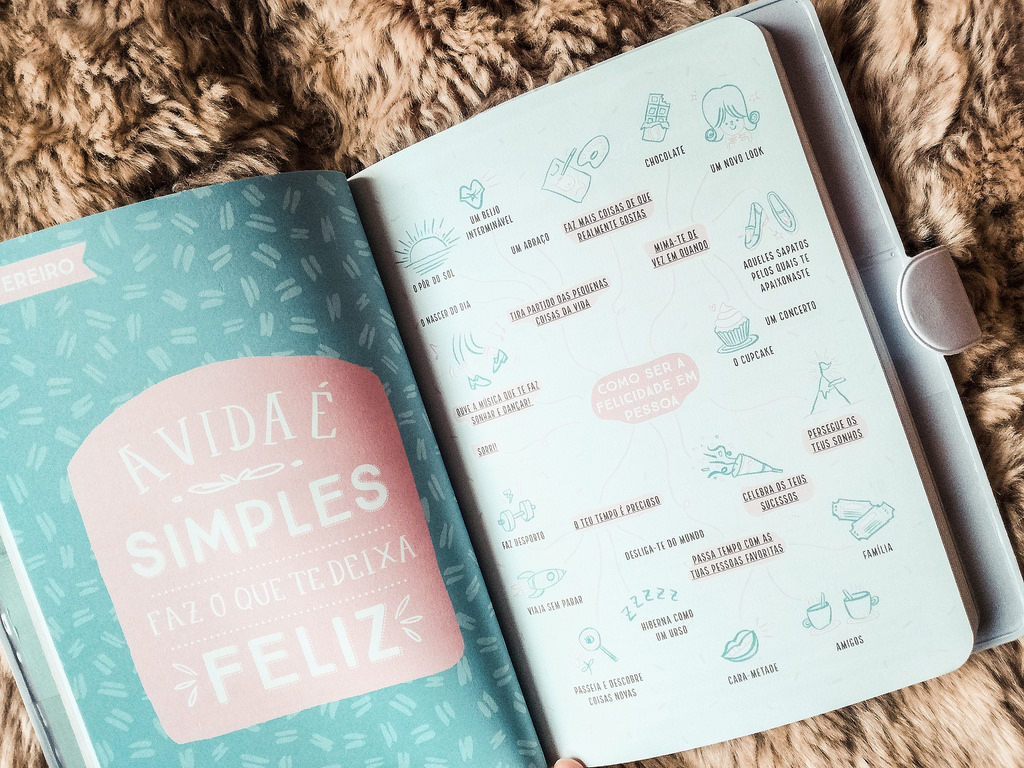 A VIDA É
SIMPLES
FAZ O QUE TE DEIXA
FELIZ
CHOCOLATE
UM NOVO LOOK
UM BEIJO
INTERMINÁVEL
UM ABRAÇO
FAZ MAIS COISAS DE QUE
REALMENTE GOSTAS
MIMA-TE DE
VEZ EM QUANDO
AQUELES SAPATOS
PELOS QUAIS TE
APAIXONASTE
O PÔR DO SOL
O NASCER DO DIA
TIRA PARTIDO DAS PEQUENAS
COISAS DA VIDA
UM CONCERTO
O CUPCAKE
COMO SER A
FELICIDADE EM
PESSOA
OUVE A MÚSICA QUE TE FAZ
SONHAR E DANÇAR!
SORRI!
PERSEGUE OS
TEUS SONHOS
CELEBRA OS TEUS
SUCESSOS
O TEU TEMPO É PRECIOSO
FAZ DESPORTO
DESLIGA-TE DO MUNDO
PASSA TEMPO COM AS
TUAS PESSOAS FAVORITAS
FAMÍLIA
VIAJA SEM PARAR
ZZZZZ
HIBERNA COMO
UM URSO
PASSEIA E DESCOBRE
COISAS NOVAS
CARA-METADE
AMIGOS